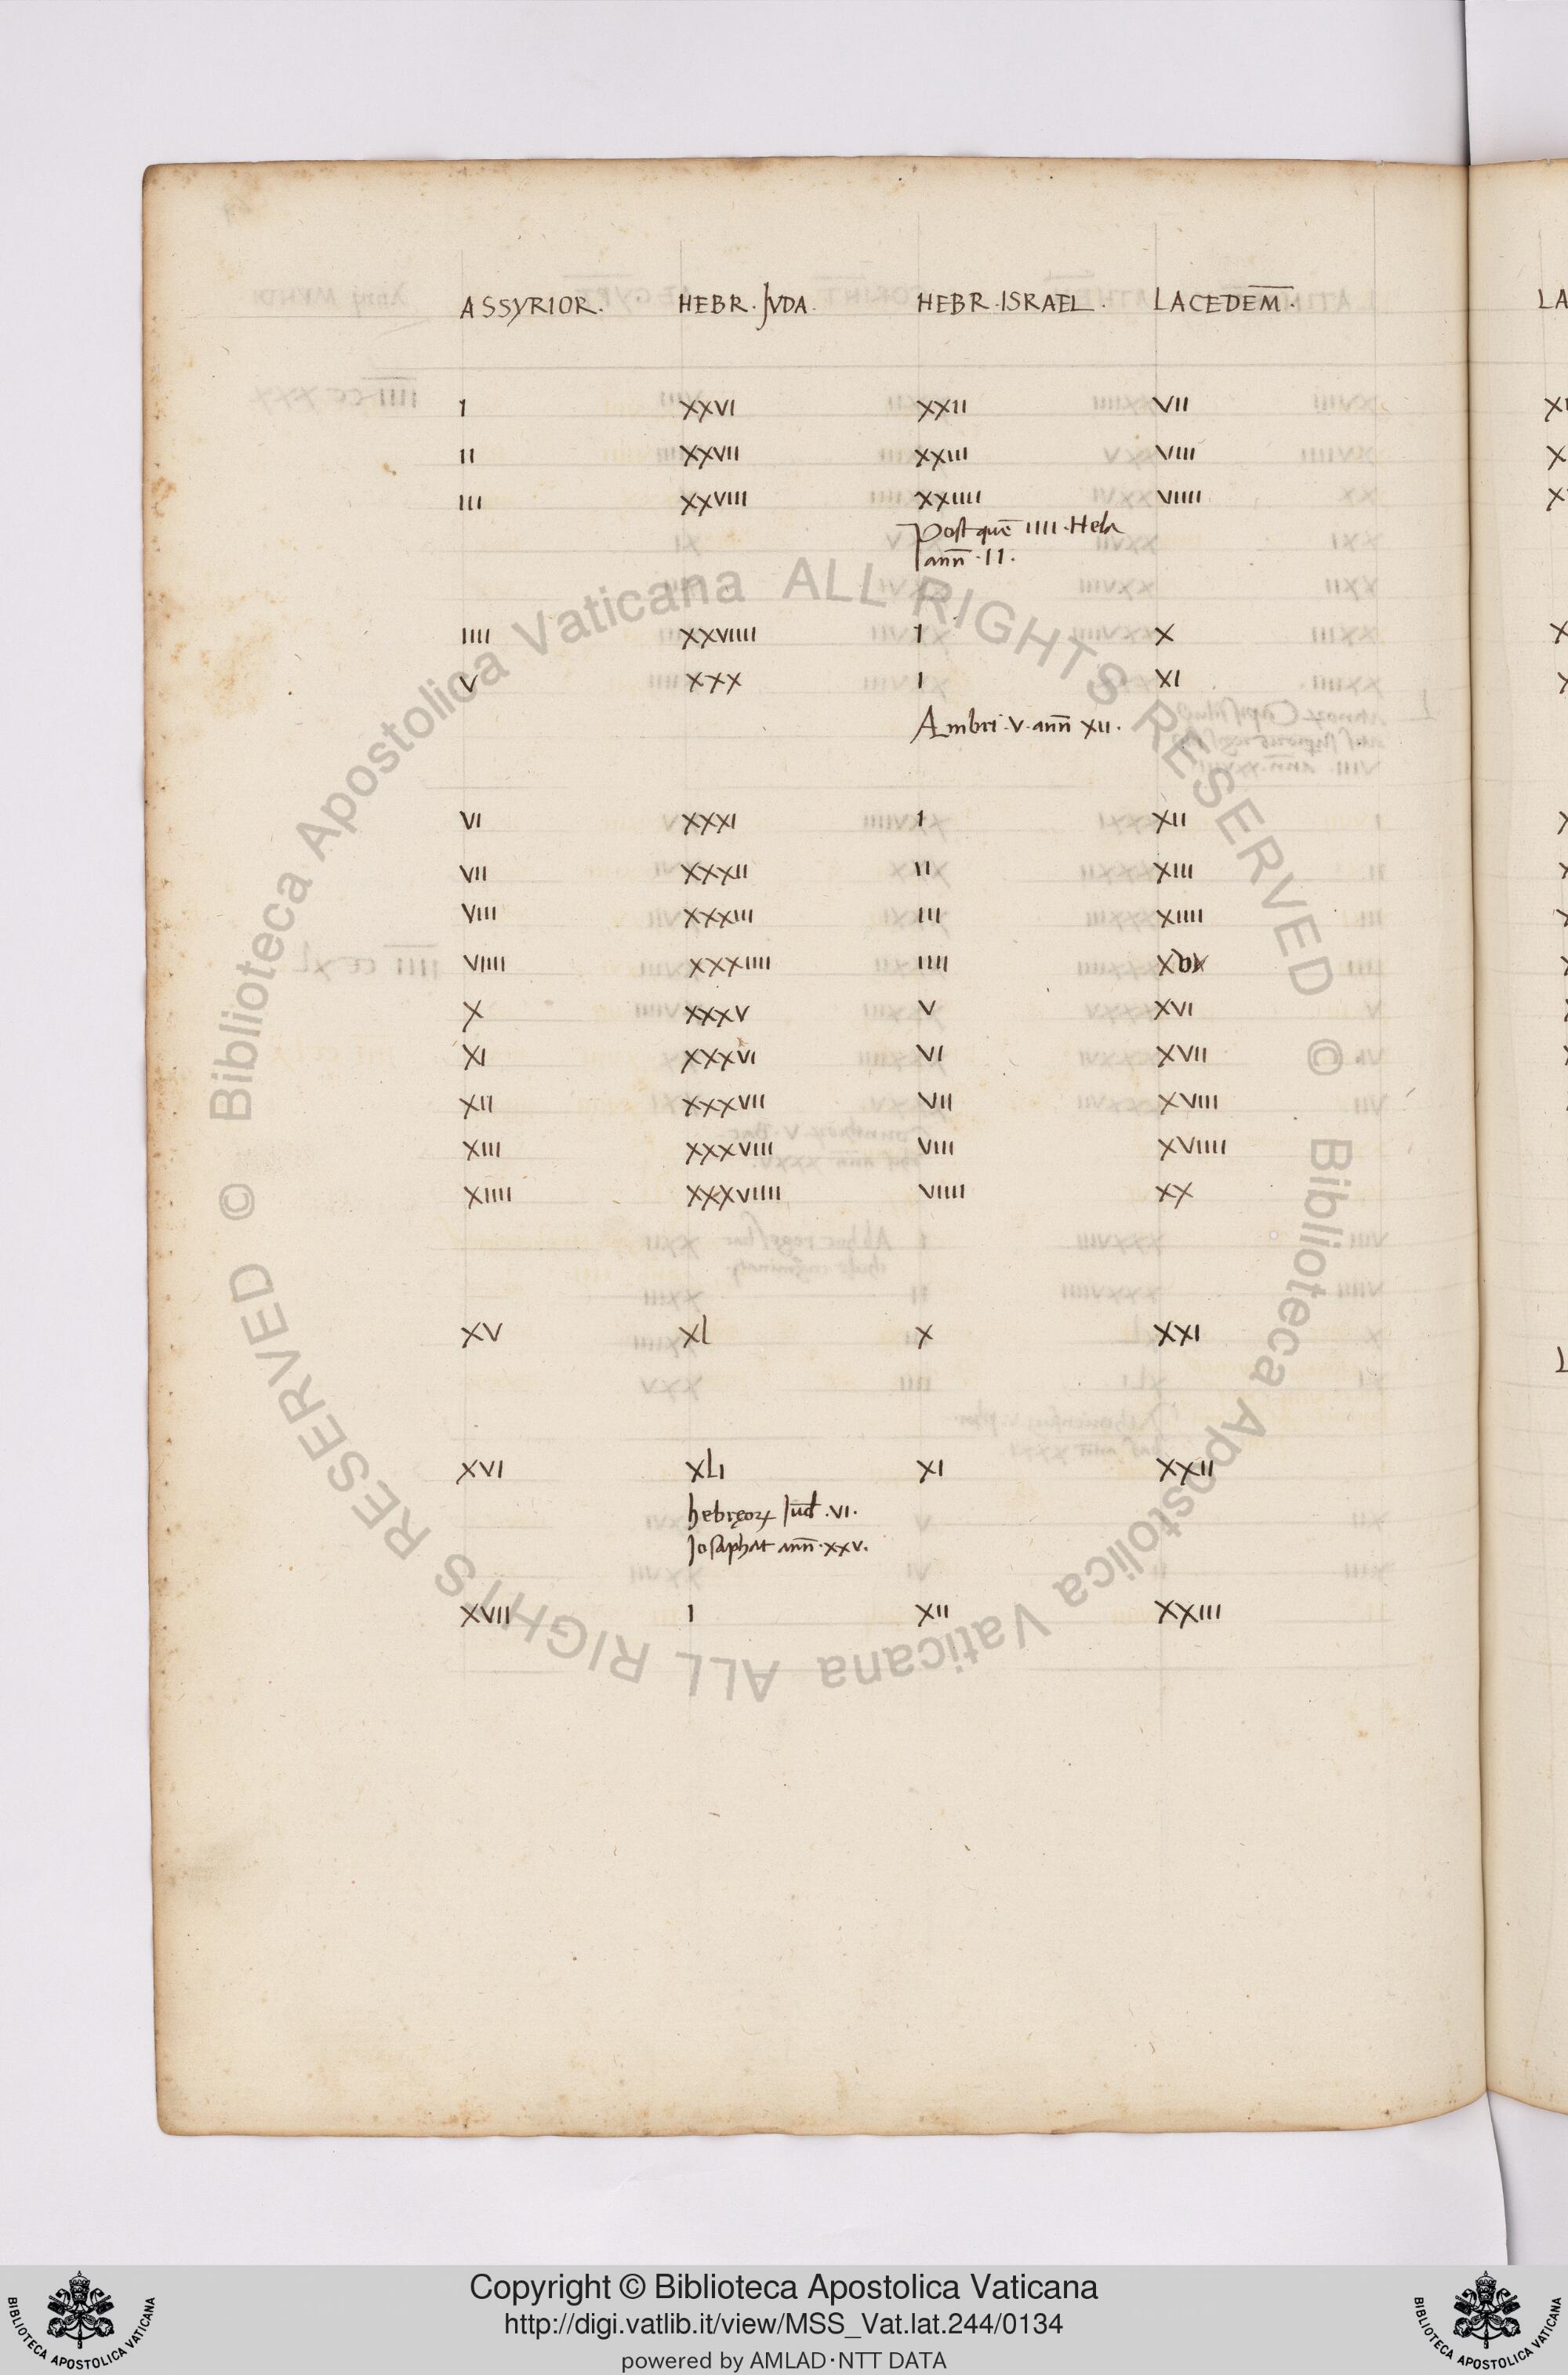 ASSYRIOR. HEBR. JVDA. HEBR. ISRAEL. LACEDEM̅.
I XXVI XXII VII
II XXVII XXIII VIII
III XXVIII XXIIII VIIII
post quē IIII. Hela
ann̄. II.
IIII XXVIIII I X
V XXX I XI
Ambri. V. ann̄ XII.
VI XXXI I XII
VII XXXII II XIII
VIII XXXIII III XIIII
VIIII XXXIIII IIII XV
X XXXV V XVI
XI XXXVI VI XVII
XII XXXVII VII XVIII
XIII XXXVIII VIII XVIIII
XIIII XXXVIIII VIIII XX
XV XL X XXI
XVI XLI XI XXII
hebręoꝝ Iud̄. VI.
Iosaphat ann̄. XXV.
XVII I XII XXIII
© Biblioteca Apostolica Vaticana ALL RIGHTS RESERVED © Biblioteca Apostolica Vaticana ALL RIGHTS RESERVED
Copyright © Biblioteca Apostolica Vaticana
http://digi.vatlib.it/view/MSS_Vat.lat.244/0134
powered by AMLAD·NTT DATA
BIBLIOTECA APOSTOLICA VATICANA
BIBLIOTECA APOSTOLICA VATICANA